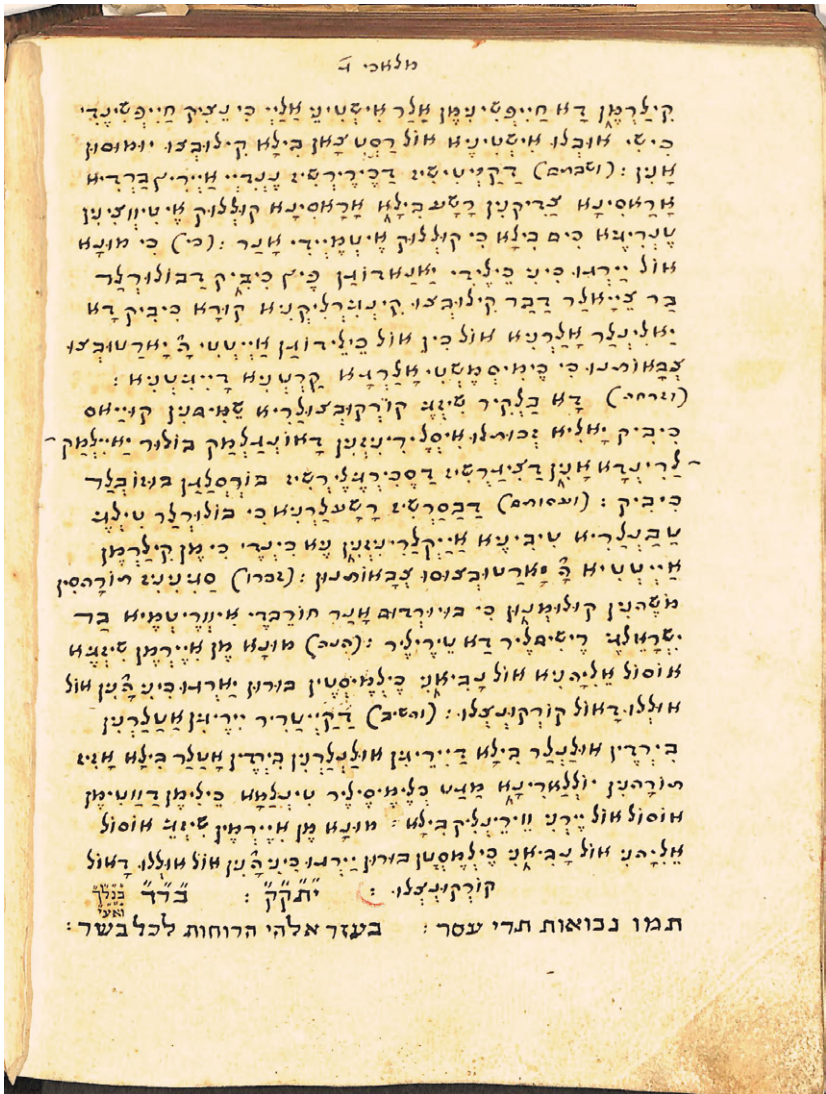 מלאכי ד
קִילַרְמֶן דָא חַיִיפְּשִׁינִימֶן אָלַר אִישְׁטִינֵי אַלַיִי כִּי נֵצִיק חַיִיפְּשִׁינֶדִי
כִּישִׁי אוּבְלוּ אִישְׁטִינֶיא אוֹל רַסְטְ צָאן בִּילָא קִילוּבְצוּ יוּמוּסוּן
אָנִין : (ושבתם) דַקַיִיטִישִׁיז דַכֵּירֵירְשִׁיז נֶנְדִיי אַיִירִיץ בַּרְדִיא
אָרַאסִינָא צַדִיקְנִין רָשָׁע בִּילָא אָרָאסִינָא קוּלְלוּק אֶיטִיוְוצִינִין
טֶנְרִיגֶא כִּים בִּילָא כִּי קוּלְלוּק אֶיטְמֶיידִי אָנַר : (כי) כִּי מוּנָא
אוֹל יַירְגוּ כִּינִי כֵּילֵידִי יַאנַאדוֹגַן פֶּיץ כִּיבִיק דַבוֹלוּרְלַר
בַּר צֵייָאלַר דַבַר קִילוּבְצוּ קִינְגִרְלִיקְנִיא קוּרָא כִּיבִיק דָא
יַאלִינְלַר אָלַרְנִיא אוֹל כִּין אוֹל כֵּילֵידוֹגַן אַיְיטְטִי הָ יָארַטוּבְצוּ
צְבָאוֹתנוּ כִּי כֶּימִיסְמֶשְׁטִי אָלַרְגָא תַּקְרְטְנִיא דָיִיגִטְנִיא :
(וזרחה) דָא בַּלְקִיר שִׁיזְגֶ קוֹרְקוּבְצוּלַרִיא שֵׁמִימְנִין קוּיַיאס
כִּיבִיק יָאלִיא זְכוּתלוּ אִיסְלֵירִינִיזְנִין דָאוֹנְגַלְמַק בּוֹלוּר יַאיִילְמַק
לַרִינְדָא אָנִין דַצִיגַרְשִׁיז דַסֵכִירְגֶלֵירְשִׁיז בּוֹרְסְלַגַן בּוּזוֹבְלַר
כִּיבִיק : (ועסותם) דַבַסַרְשִׁיז רָשָׁעלַרְנִיא כִּי בּוֹלוּרְלַר טִילְגֶ
טַבַּנְלַרִיא טִיבִינֶיא אַיַיקְלַרִינִיזְנִין נֶא כִּינְדֶי כִּי מֶן קִילַרְמֶן
אַיְיטְטִיא הָ יָארַטוּבְצוּסוּ צְבָאוֹתנוּן : (זכרו) סַגִינִיגִיז תּוֹרָהסִין
מֹשֶׁהנִין קוּלוּמְנוּן כִּי בּוּיוּרְדוּם אָנַר חוֹרֵבְדֵי אִיוְרֶטְמֶיא בַּר
יִשְׂרָאֵלגֶ רֶישִׁימְלֵיר דַא טֵירֵילֵיר : (הנה) מוּנָא מֶן אִיֶירְמֶן שִׁיזְגֶא
אוּסוֹל אֵלִיָהנִיא אוֹל נָבִיאנִי כֵּילְמֶיסְטֵין בּוּרוּן יַארְגוּ כִּינִי הָנִין אוֹל
אוּלְלוּ דָאוֹל קוֹרְקוּנְצְלוּ : (והשיב) דַקַיְיטַרִיר יִירֶיגִן אַטַלַרְנִין
בִּירְדִין אוּלַנְלַר בִּילָא דַיִירֵיגִן אוּלַנְלַרְנִין בִּירְדִין אָטַלַר בִּילָא אָזִיז
תּוֹרָהנִין יוֹלְלַארִינָא מַגַט כְּלֵימֵיסֵילֵיר טִינְגַלְמָא כֵּילִימֶן דַוַוטִימֶן
אוּסוֹל אוֹל יֶירְנִי וֵירֶינְלִיק בִּילָא : מוּנָא מֶן אִיֶירְמֶין שִׁיזְגֶ אוּסוֹל
אֵלִיָהנִי אוֹל נָבִיאנִי כֵּילְמֶסְטָן בּוּרוּן יַירְגוּ כִּינִי הָנִין אוֹל אוּלְלוּ דָאוֹל
קוֹרְקוּנְצְלוּ : יתקק : ברד בנלך ואעי
תמו נבואות תרי עסר : בעזר אלהי הרוחות לכל בשר :